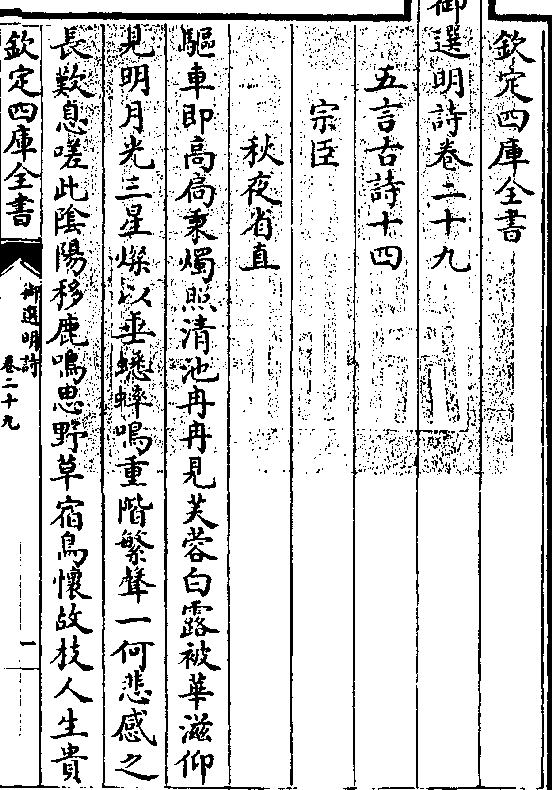 欽定四庫全書
御選明詩卷二十九
五言古詩十四
宗臣
秋夜省直
驅車即高扃秉燭照清池冉冉見芙蓉白露被華滋仰
見明月光三星燦以垂蟋蟀鳴重階繁聲一何悲感之
長歎息嗟此陰陽移鹿鳴思野草宿鳥懷故枝人生貴
欽定四庫全書
御選明詩
卷二十九
一